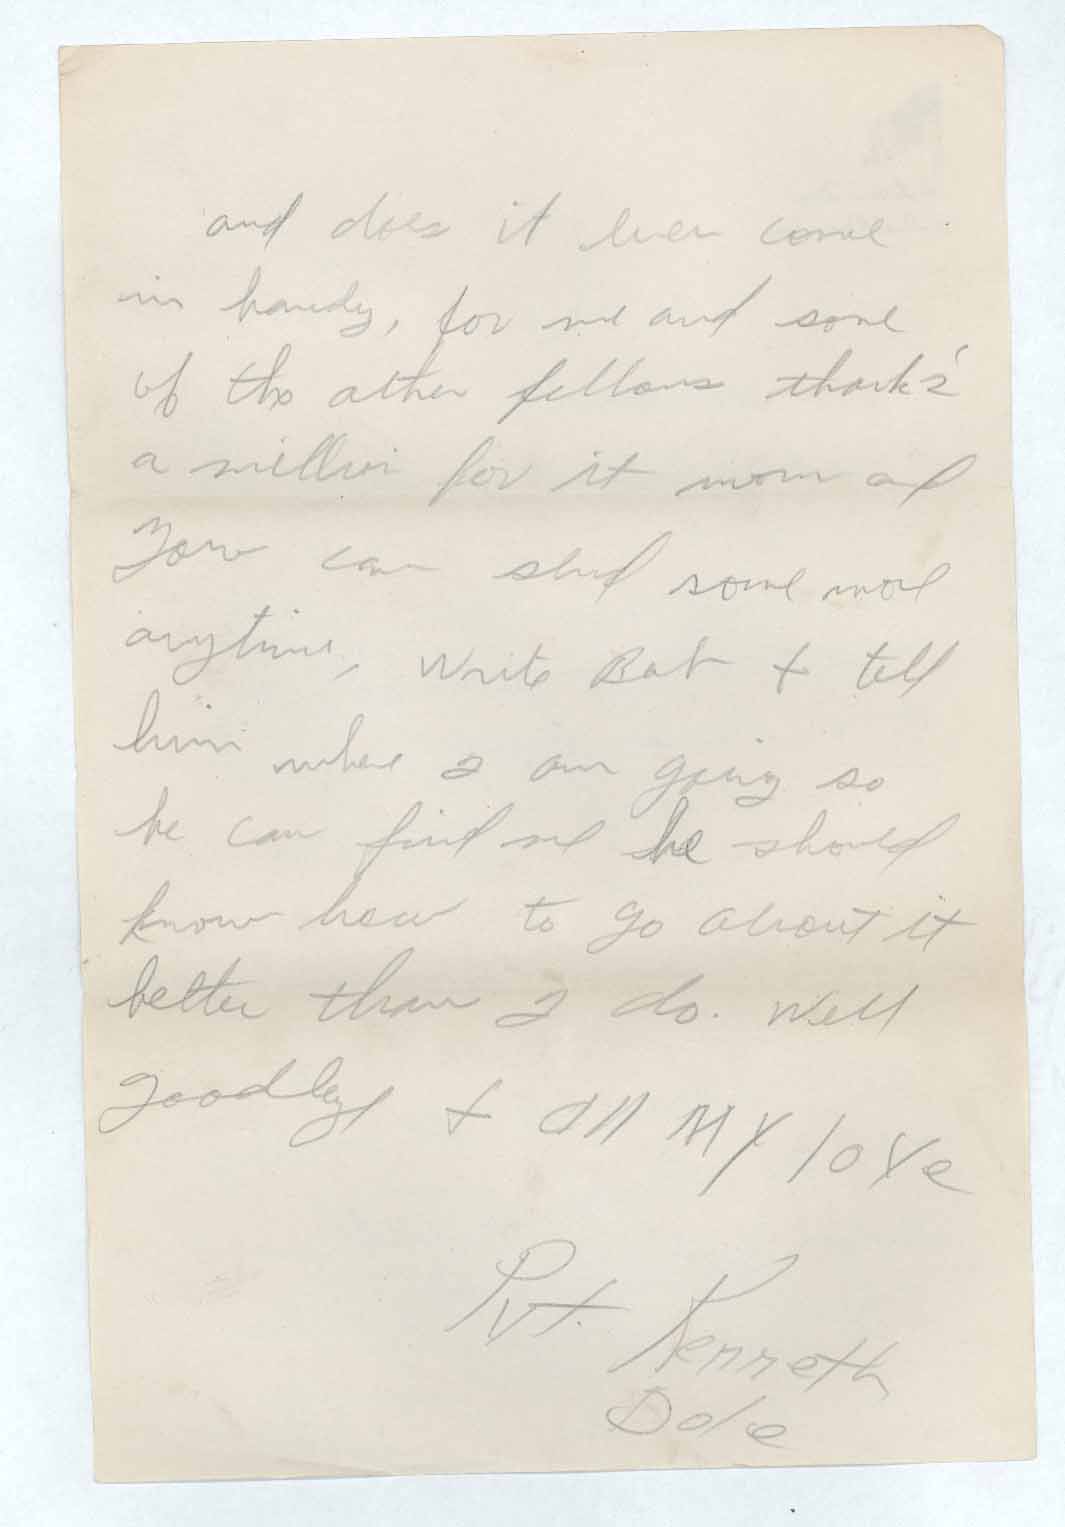 and does it ever come
in handy, for me and some
of the other fellows thank's
a million for it mom and
you can send some more
anytime, write Bob & tell
him where I am going so
he can find me he should
know how to go about it
better than I do. Well
goodbye & all my love
Pvt. Kenneth
Dole